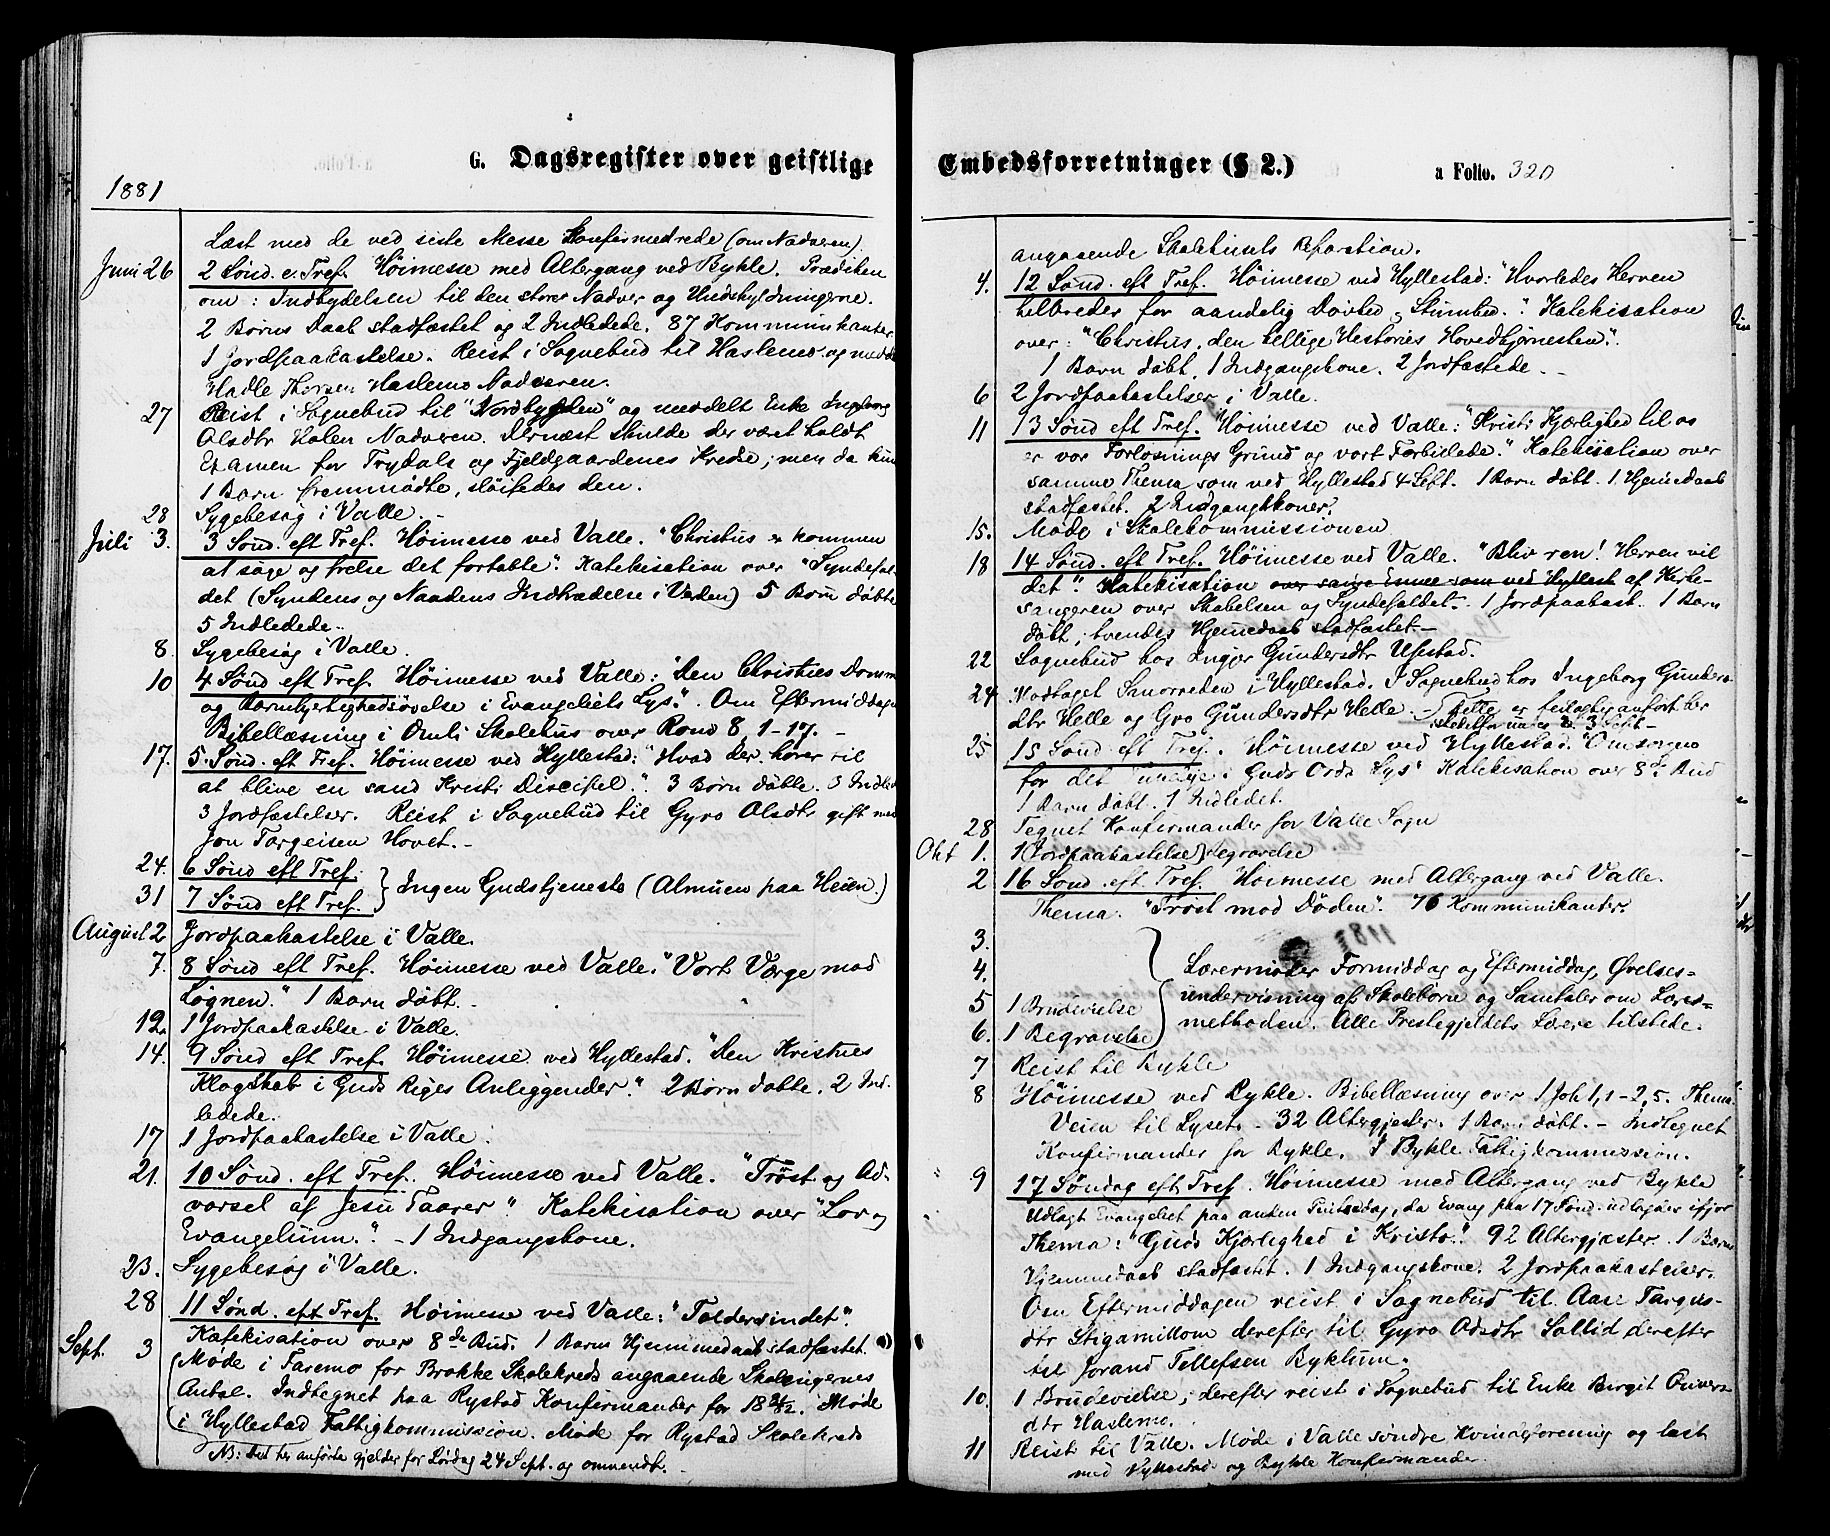 G. Dagsregister over geistlige
1881
Læst med de ved siste Messe Konfirmedrede (om Nadveren).
Juni 26 2 Sönd. e. Tref. Höimesse med Altergang ved Bykle. Prædiken
om: Indbydelsen til den store Nadver og Undskyldningerne.
2 Börns Daab stadfæstet og 2 Indledede. 87 Kommunikanter
1 Jordpaakastelse. Reist i Sognebud til Haslemo og meddelt
Halle Thorsen Haslemo Nadveren.
27 Reist i Sognebud til "Nordbygden" og meddelt Enke Ingeborg
Olsdtr Holen Nadveren. Dernæst skulde der været holdt
Examen for Trydals og Fjeldgaardenes Kreds; men da kun
1 Barn fremmödte, slöifedes den.
28 Sygebesög i Valle. -
Juli 3. 3 Sönd. eft Tref. Höimesse ved Valle. "Christus er kommen
at söge og frelse det fortabte". Katekisation over "Syndefal-
det (Syndens og Naadens Indtrædelse i Verden) 5 Börn döbte
5 Indledede.
8. Sygebesög i Valle.
10 4 Sönd eft Tref. Höimesse ved Valle: "Den Christnes Dommen
og Barmhjertighedsövelse i Evangeliets Lys". Om Eftermiddagen
Bibellæsning i Omli Skolehus over Rom 8, 1-17. -
17. 5. Sönd. eft Tref. Höimesse ved Hyllestad: "Hvad der hörer til
at blive en sand Kristi Discipel". 3 Börn döbte. 3 Indled
3 Jordfæstelser. Reist i Sognebud til Gyro Olsdtr gift med
Jon Torgeisen Hovet. -
24. 6 Sönd eft Tref.
31 7 Sönd eft Tref. } Ingen Gudstjeneste (Almuen paa Heien.)
August 2 Jordpaakastelse i Valle.
7. 8 Sönd eft Tref. Höimesse ved Valle. "Vort Værge mod
Lögnen." 1 Barn döbt. -
12. 1 Jordpaakastelse i Valle.
14. 9 Sönd eft Tref. Höimesse ved Hyllestad. "Den Kristnes
Klogskab i Guds Riges Anliggender". 2 Börn döbte. 2 Ind-
ledede.
17 1 Jordpaakastelse i Valle.
21. 10 Sönd. eft Tref. Höimesse ved Valle. "Tröst og Ad-
varsel af Jesu Taarer" Katekisation over "Lov og
Evangelium." - 1 Indgangskone.
23. Sygebesög i Valle.
28 11 Sönd. eft Tref. Höimesse ved Valle: "Toldersindet".
Katekisation over 8de Bud. 1 Barns Hjemmedaab stadfæstet.
Sept. 3 Möde i Faremo for Brokke Skolekreds angaaende Skolengernes
Antal. Indtegnet paa Rystad Konfirmander for 1881/82. Möde
i Hyllestad Fattigkommission. Möde for Rystad Skolekreds
NB: Det her anförte gjelder for Lördag 24 Sept. og omvendt. -
Embedsforretninger (§ 2.)
a Folio. 320
angaaende Skolehusets Reparation.
4. 12 Sönd. eft Tref. Höimesse ved Hyllestad: "Hvorledes Herren
helbreder for aandelig Dövhed og Stumhed". Katekisation
over: "Christus, den hellige Histories Hovedhjörnesten".
1 Barn döbt. 1 Indgangskone. 2 Jordfæstede. -
6 2 Jordpaakastelser i Valle.
11 13 Sönd eft Tref. Höimesse ved Valle: "Kristi Kjærlighed til os
er vor Forlösnings Grund og vort Forbillede." Katekisation over
samme Thema som ved Hyllestad 4 Sept. 1 Barn döbt. 1 Hjemedaab
stadfæstet. 2 Indgangskoner.
15. Möde i Skolekommissionen
18 14 Sönd. eft Tref. Höimesse ved Valle. "Bliv ren! Herren vil
det". Katekisation over samme Emne som ved Hyllest af Kirke-
sangeren over Skabelsen og Syndefaldet. 1 Jordpaakast. 1 Barn
döbt; tvendes Hjemedaab stadfæstet -
22 Sognebud hos Ingjer Gundersdtr Ufstad.
24. Modtaget Smörreden i Hyllestad. I Sognebud hos Ingeborg Gunders-
dtr Helle og Gro Gundersdtr Helle. - Dette er feilagtig anfört her
istedetfor under 3 Sept -
25. 15 Sönd eft Tref. Höimesse ved Hyllestad. "Omsorgen
for det Timelige i Guds Ords Lys" Katekisation over 8de Bud
1 Barn döbt. 1 Indledet.
28 Tegnet Konfirmander for Valle Sogn
Okt 1. 1 (Jordpaakastelse) Begravelse
2 16 Sönd. eft Tref. Höimesse med Altergang ved Valle.
Thema. "Tröst mod Döden". 76 Kommunikanter.
3.
4. Lærermöder Formiddag og Eftermiddag, Övelses-
5 1 Brudevielse undervisning af Skolebörn og Samtaler om Lære-
6. 1 Begravelse methoden. Alle Prestegjeldets Lærere tilstede.
7 Reist til Bykle
8 Höimesse ved Bykle. Bibellæsning over 1 Joh 1, 1-2,5. Thema:
Veien til Lyset. - 32 Altergjester. 1 Barn döbt. - Indtegnet
Konfirmander for Bykle. I Bykle Fattigkommission.
9 17 Söndag eft Tref. Höimesse med Altergang ved Bykle
Udlagt Evangeliet paa anden Pintsedag, da Evang paa 17 Sönd. udlagdes ifjor
Thema: "Guds Kjærlighed i Kristo." 92 Altergjæster. 1 Barns
Hjemmedaab stadfæstet. 1 Indgangskone. 2 Jordpaakastelser.
Om Eftermiddagen reist i Sognebud til Aase Targus-
dtr Stigamillom derefter til Gyro Olsdtr Sollid, derefter
til Jorand Tellefsen Byklum.
10. 1 Brudevielse; derefter reist i Sognebud til Enke Birgit Önivers
dtr Haslemo.
11 Reist til Valle. Möde i Valle söndre Kvindeforening og læst
med Hyllestad og Bykle Konfirmander.